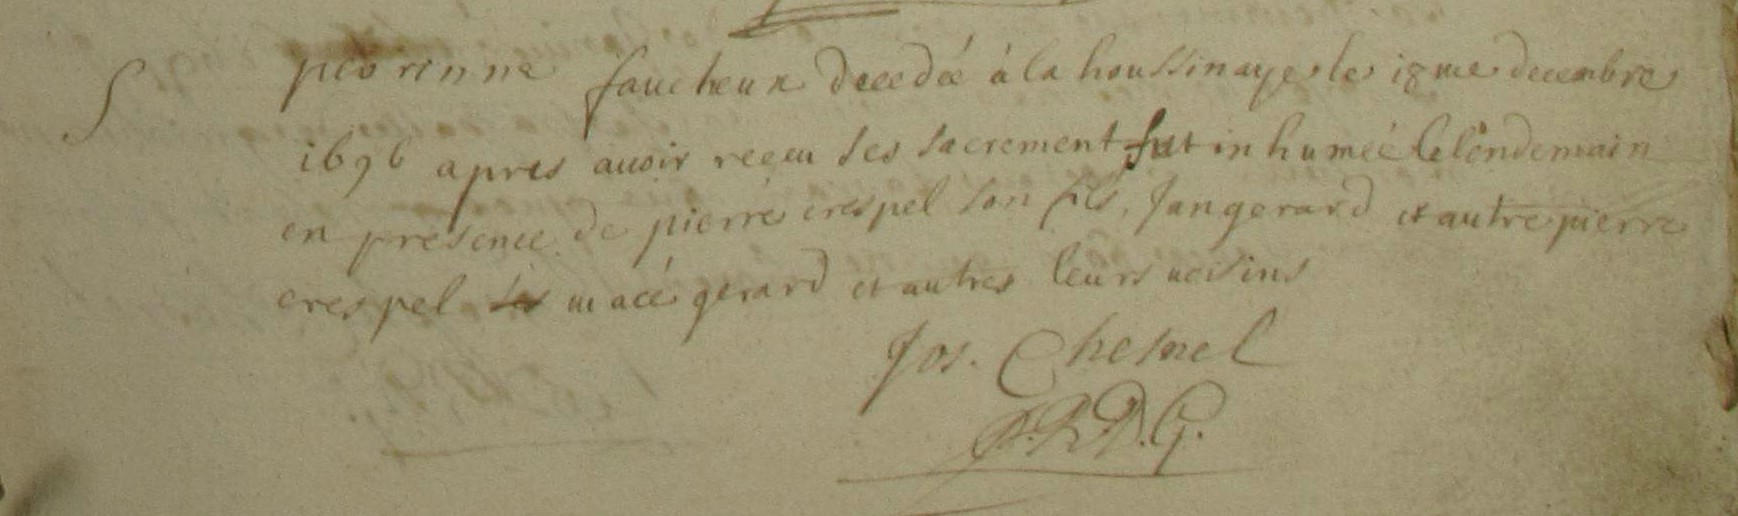 S perinne faucheux decedée à la houssinaye le 18me decembre
1696 apres avoir reçeu ses sacrement fut inhumée le lendemain
en presence de pierre crespel son fils, Jan gerard et autre pierre
crespel macé gerard et autres leurs voisins
Jos. Chesnel
P.R.D.G.